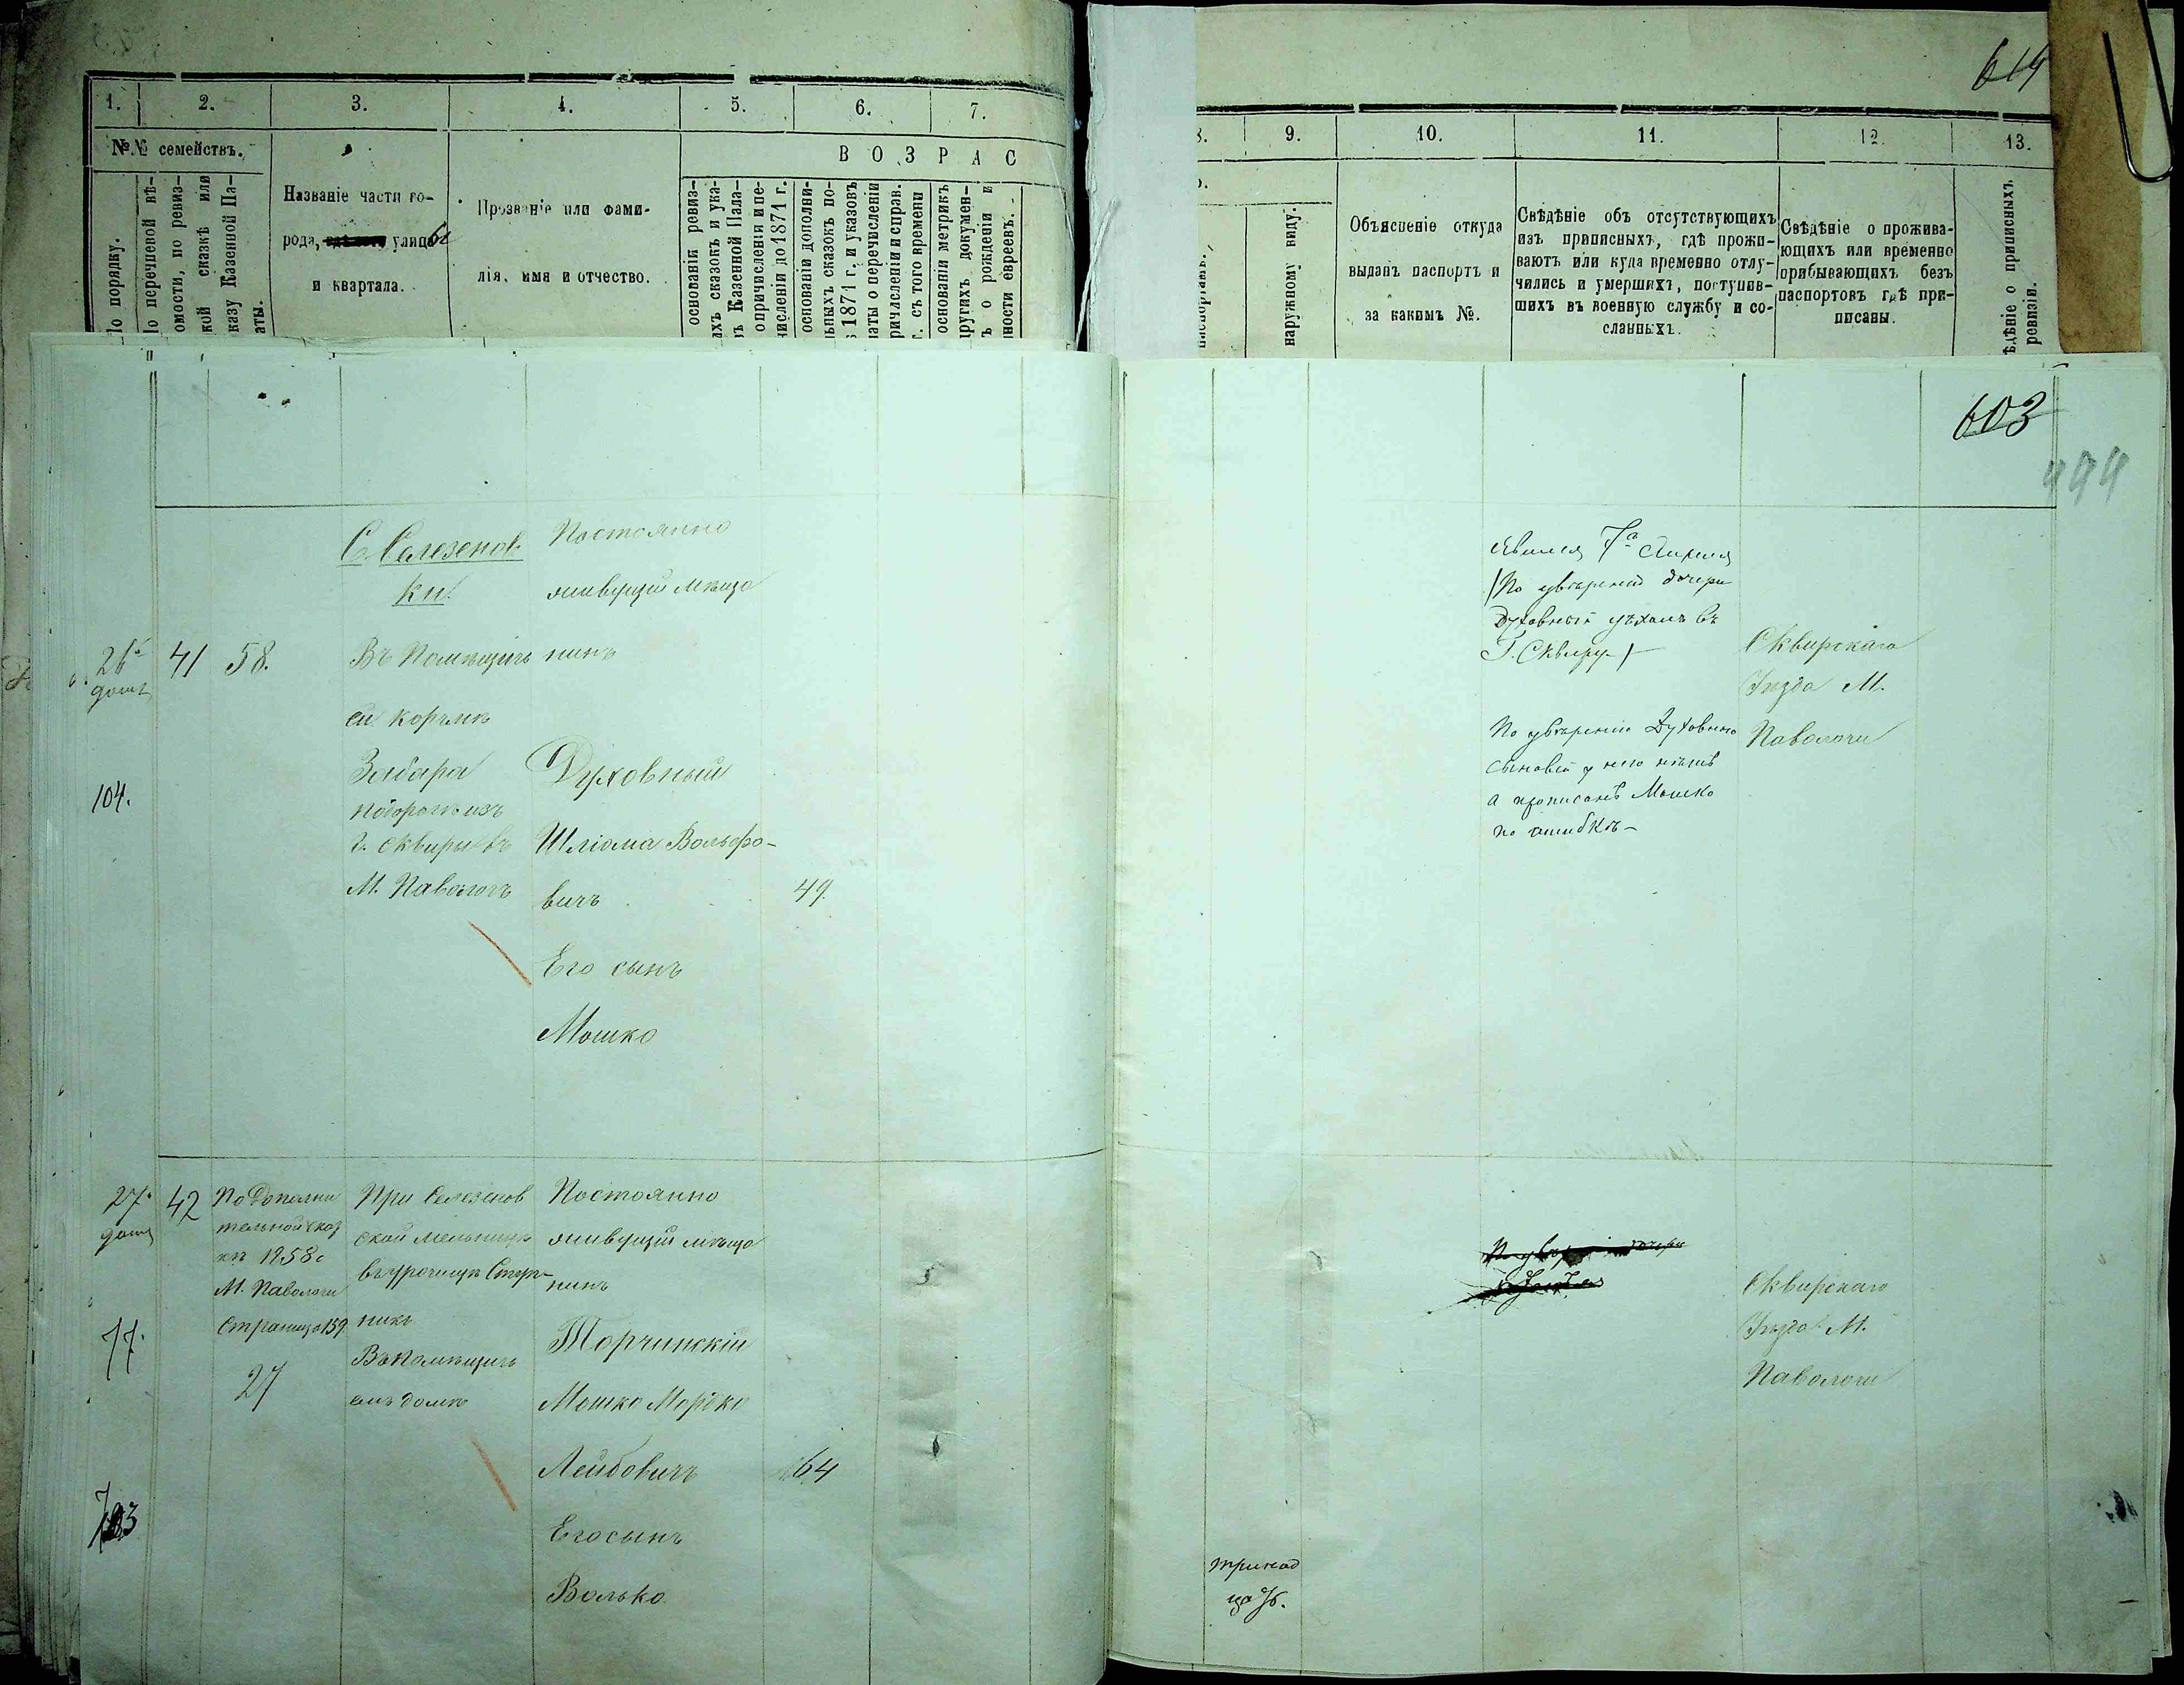 614
1. 2. 3. 4. 5. 6. 7.
8. 9. 10. 11. 12. 13.
№№ семействъ.
По порядку.
По перечневой вѣ-
омости, по ревиз-
кой сказкѣ или
казу Казенной Па-
аты.
Названіе части го-
рода, улицы
и квартала.
Прозваніе или фами-
лія, имя и отчество.
ВОЗРАС
основаніи ревиз-
ихъ сказокъ и ука-
въ Казенной Пала-
о причисленіи и пе-
численіи до 1871 г.
основаніи дополни-
ьныхъ сказокъ по-
ѣ 1871 г. и указовъ
латы о перечисленіи
ричисленіи и справ.
г. съ того времени
основаніи метрикъ
другихъ докумен-
ъ о рожденіи и
ности евреевъ.
наружному виду.
Объясненіе откуда
выданъ паспортъ и
за какимъ №.
Свѣдѣніе объ отсутствующихъ
изъ приписныхъ, гдѣ прожи-
ваютъ или куда временно отлу-
чились и умершихъ, поступив-
шихъ въ военную службу и со-
сланныхъ.
Свѣдѣніе о прожива-
ющихъ или временно
прибывающихъ безъ
паспортовъ гдѣ при-
писаны.
ѣдѣніе о приписныхъ
ревизіи.
603
494
С. Селезенов
ки
Постоянно
живущій мѣща
нинъ
26й
домъ
41 58.
104.
Въ Помѣщичь
ей корчмѣ
г. Сквиры въ
М. Паволочь
Духовный
Шліома Вольфо-
вичъ
49.
Его сынъ
Мошко
Явился 7а Апреля
(По увѣренію дочери
Духовный уѣхалъ въ
Г. Сквиру)
По увѣренію Духовнаго
сыновей у него нѣтъ
а прописанъ Мошко
по ошибкѣ
Сквирскаго
Уѣзда М.
Паволочи
27.
домъ
42
77.
По дополни
тельной сказ
кѣ 1858 г
М. Паволочи
страница 159
27
При Селезенов
ской мельницѣ
въ урочищѣ
Въ помѣщичь
емъ домѣ
Постоянно
живущій мѣща
нинъ
Торчинскій
Мошко Мордко
Лейбовичъ
64
Его сынъ
Волько
тринад
цать.
Сквирскаго
Уѣзда М.
Паволочи